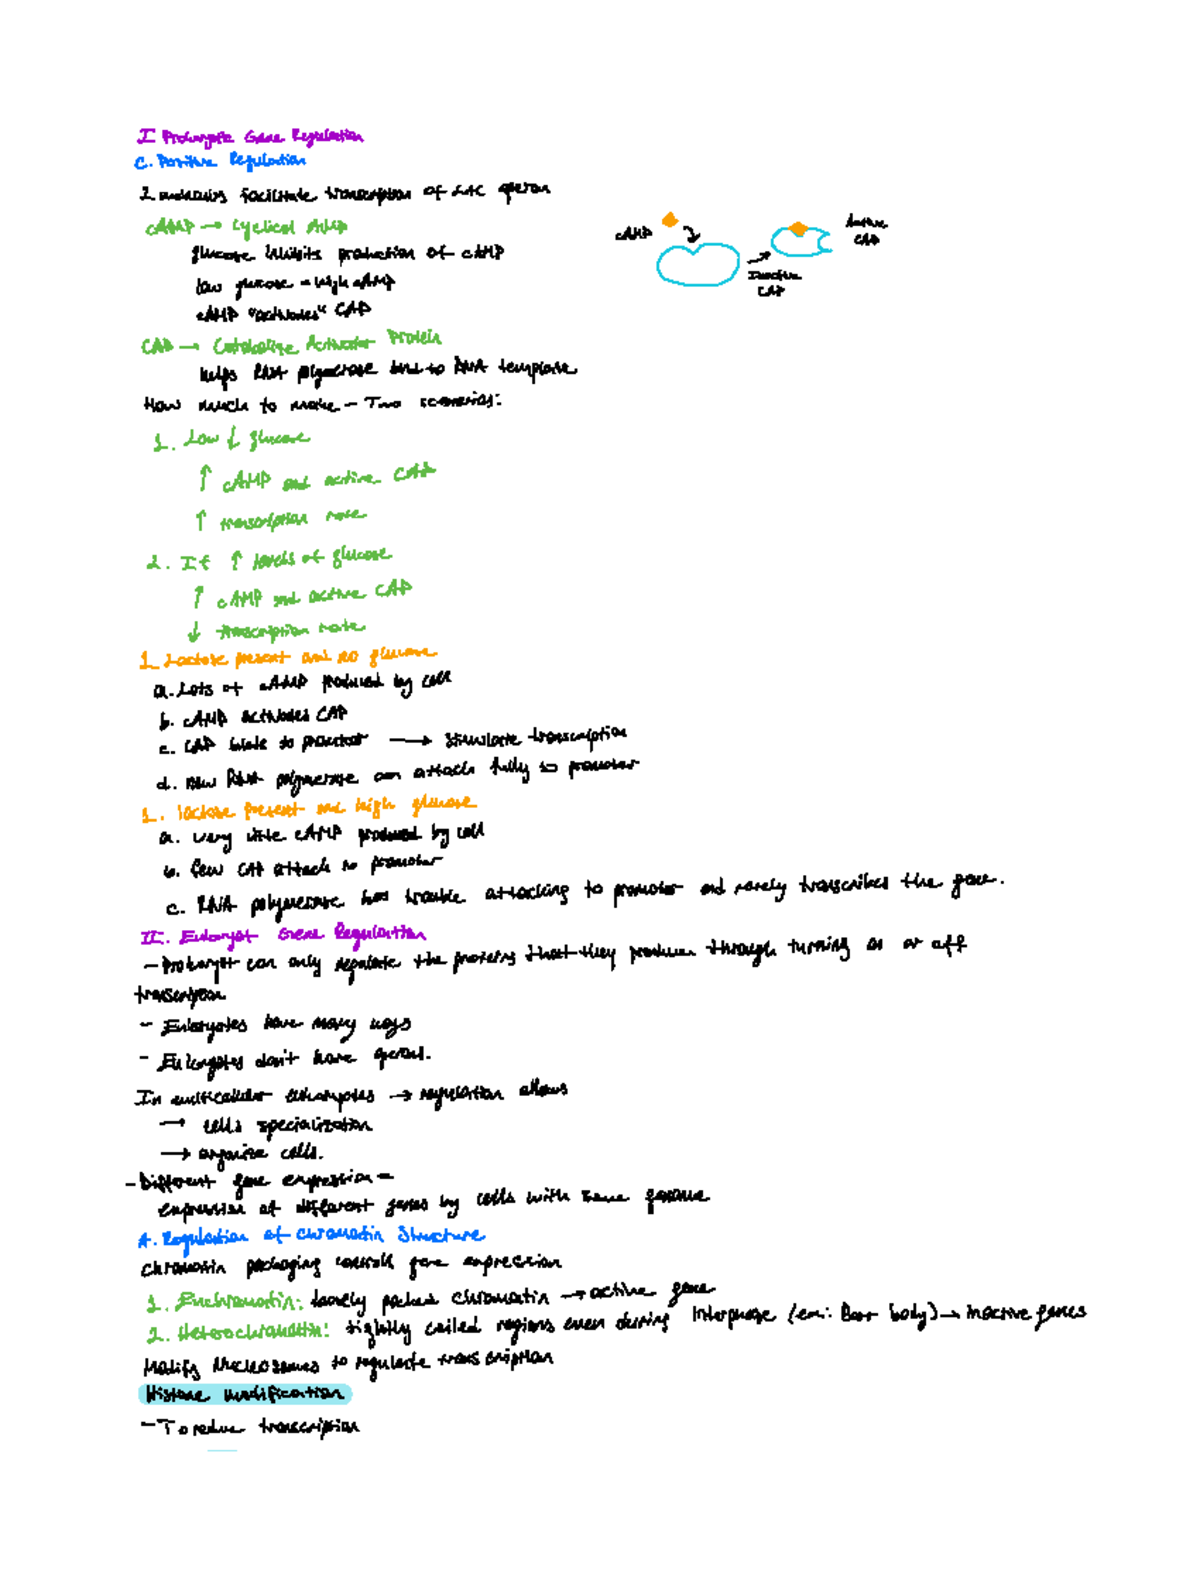 I Prokaryote Gene Regulation
C. Positive Regulation
2 molecules facilitate transcription of LAC operon
cAMP → Cyclical AMP
glucose inhibits production of cAMP
low glucose = high cAMP
cAMP "activates" CAP
cAMP
Inactive
CAP
Active
CAP
CAP → Catabolite Activator Protein
helps RNA polymerase bind to DNA template
How much to make - Two scenarios:
1. Low ↓ glucose
↑ cAMP and active CAP
↑ transcription rate
2. If ↑ levels of glucose
↑ cAMP and active CAP
↓ transcription rate
1 Lactose present and no glucose
a. Lots of cAMP produced by cell
b. cAMP activates CAP
c. CAP binds to promoter → stimulate transcription
d. Now RNA polymerase can attach fully to promoter
1. lactose present and high glucose
a. very little cAMP produced by cell
b. few CAP attach to promoter
c. RNA polymerase has trouble attacking to promoter and rarely transcribes the gene.
II. Eukaryot Gene Regulation
- Prokaryot can only regulate the proteins that they produce through turning on or off
transcription
- Eukaryotes have many ways
- Eukaryotes don't have
In multicellular eukaryotes → regulation allows
→ cells specialization
→ organize cells.
- Different gene expression =
expression of different genes by cells with same genome
A. Regulation of Chromatin Structure
Chromatin packaging controls gene expression
1. Euchromatin: loosely packed chromatin → active gene
2. Heterochromatin: tightly coiled regions even during interphase (em: Barr body) → inactive genes
Modify Nucleosomes to regulate transcription
Histone modification
- To reduce transcription